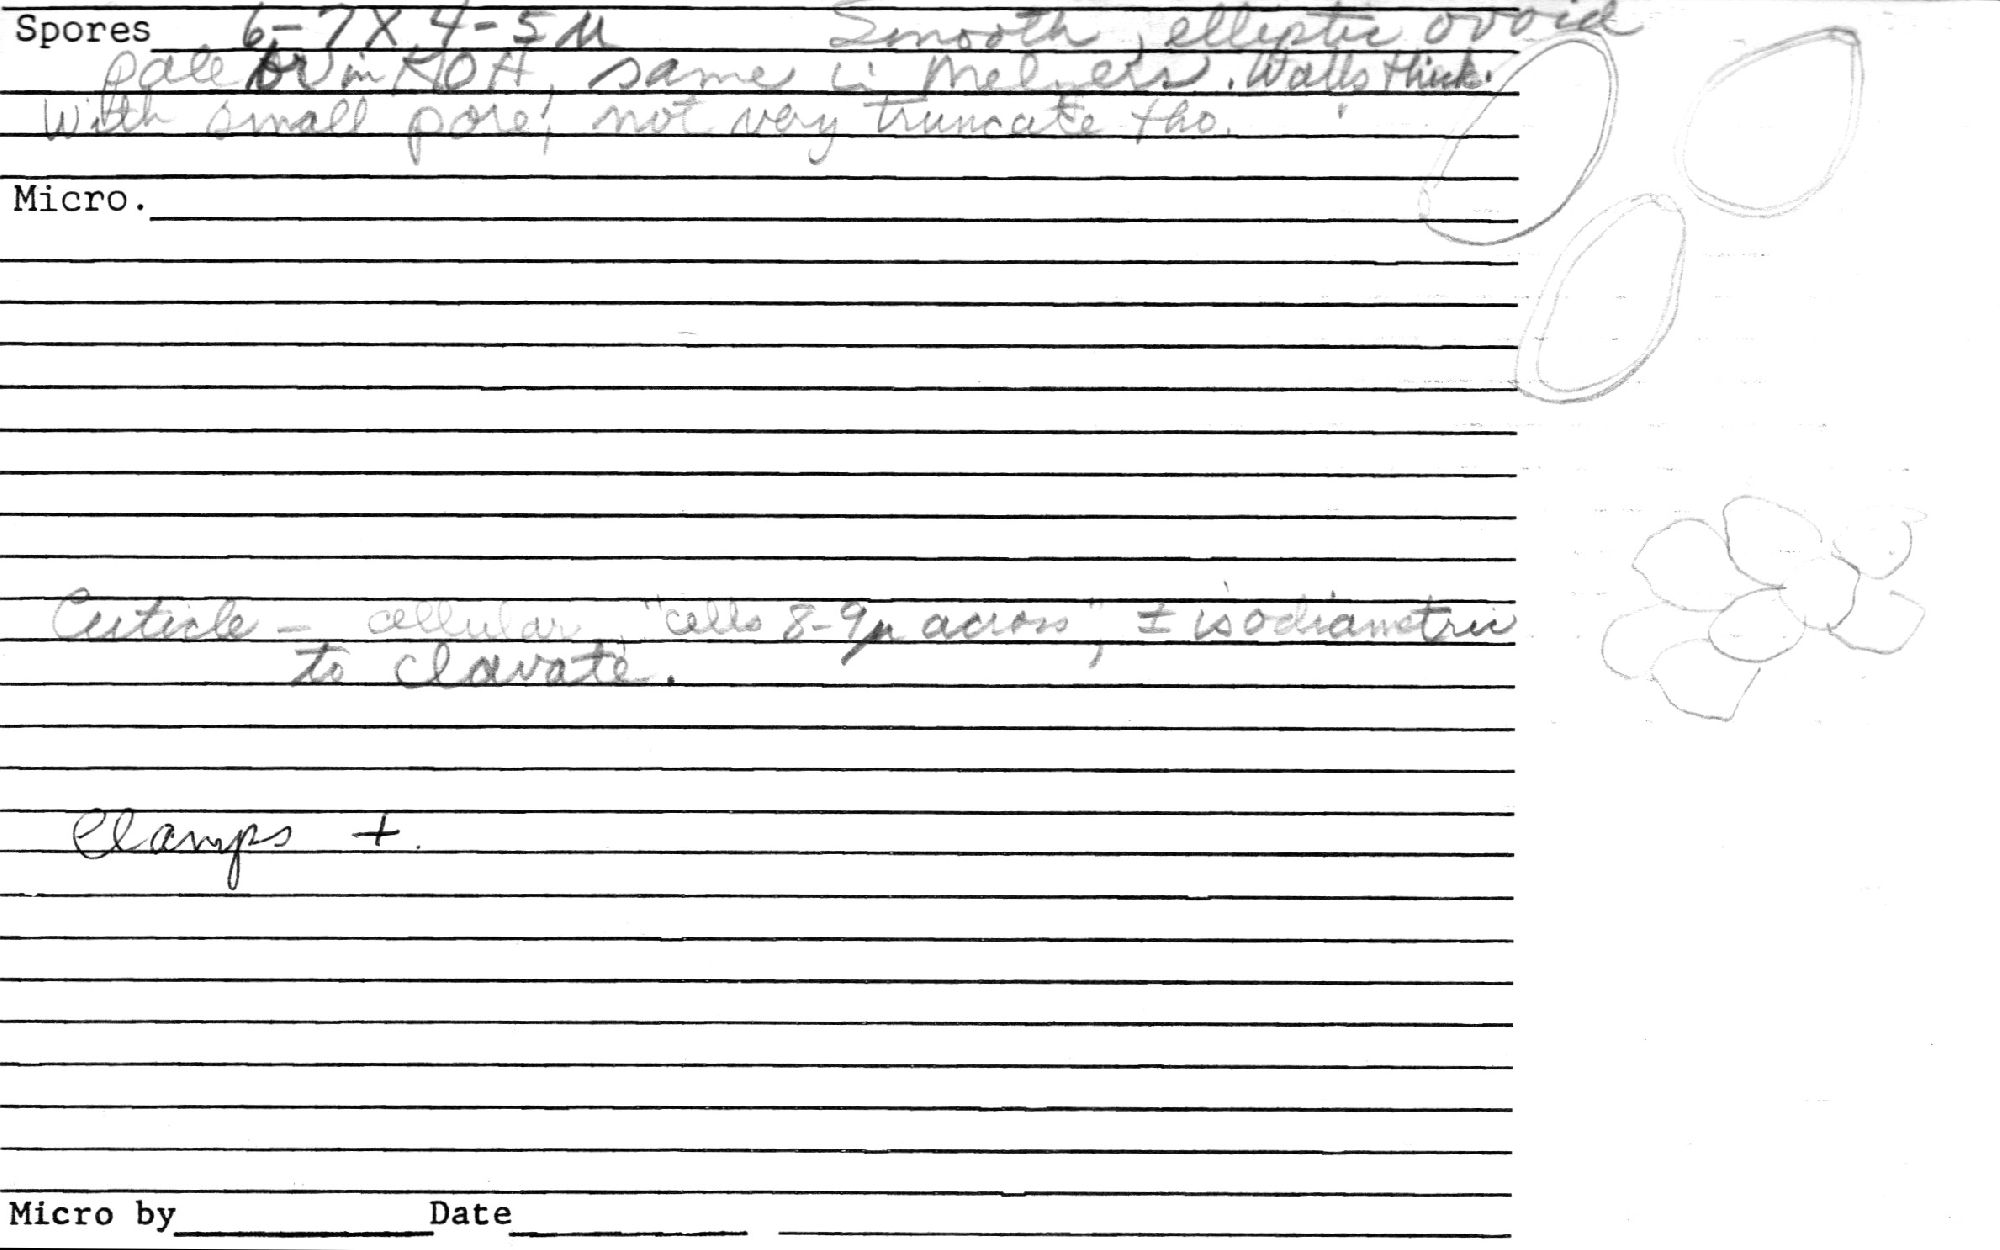 Spores 6-7 X 4-5 µ Smooth, elliptic ovoid
pale br in KOH, same in Melzers. Walls thick.
With small pore, not very truncate tho.
Micro.
Cuticle - cellular, "cells 8-9µ across", ± isodiametric
to clavate.
Clamps +.
Micro by Date